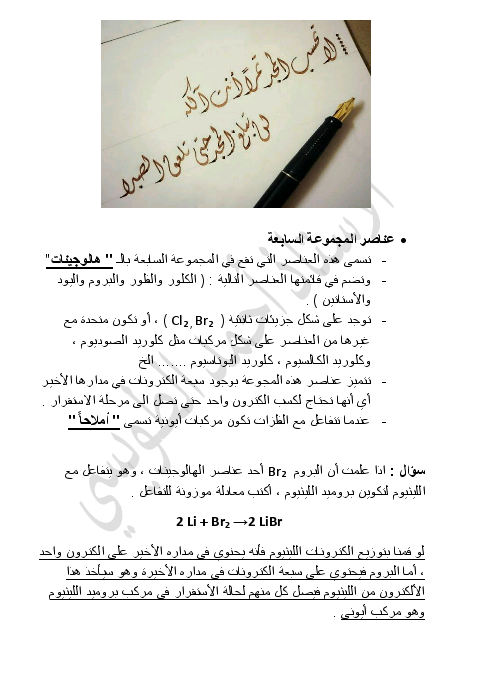 لا تحسب المجد تمراً أنت آكله
لن تبلغ المجد حتى تلعق الصبرا
• عناصر المجموعة السابعة
- تسمى هذه العناصر التي تقع في المجموعة السابعة بالـ " هالوجينات"
- وتضم في قائمتها العناصر التالية : ( الكلور والفلور والبروم واليود
والأستاتين ) .
- توجد على شكل جزيئات ثنائية ( Cl₂, Br₂ ) ، أو تكون متحدة مع
غيرها من العناصر على شكل مركبات مثل كلوريد الصوديوم ،
وكلوريد الكالسيوم ، كلوريد البوتاسيوم ....... الخ
- تتميز عناصر هذه المجوعة بوجود سبعة الكترونات في مدارها الأخير
أي أنها تحتاج لكسب الكترون واحد حتى تصل الى مرحلة الاستقرار .
- عندما تتفاعل مع الفلزات تكون مركبات أيونية تسمى " أملاحاً "
سؤال : اذا علمت أن البروم Br₂ أحد عناصر الهالوجينات ، وهو يتفاعل مع
الليثيوم لتكوين بروميد الليثيوم ، أكتب معادلة موزونة للتفاعل .
2 Li + Br₂ →2 LiBr
لو قمنا بتوزيع الكترونات الليثيوم فأنه يحتوي في مداره الأخير على الكترون واحد
، أما البروم فيحتوي على سبعة الكترونات في مداره الأخيرة وهو سيأخذ هذا
الألكترون من الليثيوم فيصل كل منهم لحالة الأستقرار في مركب بروميد الليثيوم
وهو مركب أيوني .